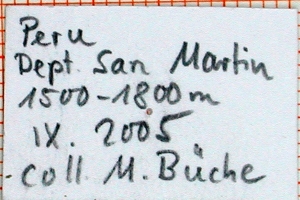 Peru
Dept. San Martin
1500-1800m
IX. 2005
coll. M. Büche